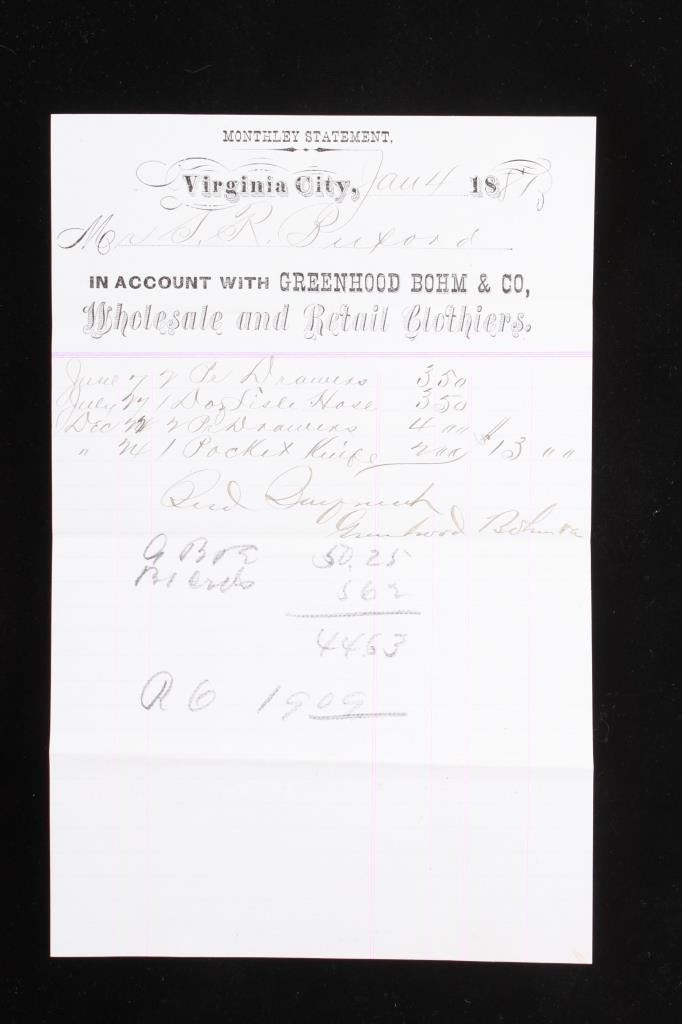 MONTHLEY STATEMENT.
Virginia City, Jan 4 188
Mr S. R. Buford
IN ACCOUNT WITH GREENHOOD BOHM & CO,
Wholesale and Retail Clothiers.
June 7 2 Pr Drawers 3 50
July 27 1 Doz Lisle Hose 3 50
Dec 2 Pr Drawers 4 " "
" 24 1 Pocket Knife 2 00 $13 " "
Recd Payment
Greenhood Bohm & Co
G B & Co 50.25
562
44.63
1909